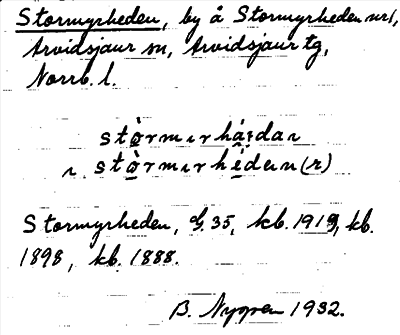 Stormyrheden, by å Stormyrheden nr 1,
Arvidsjaur sn, Arvidsjaur tg,
Norrb. l.
stòrmırhá:daı
ı stòrmırhédeın(r)
Stormyrheden, G. 35, kb. 1919, kb.
1898, kb. 1888.
B. Nygren 1932.